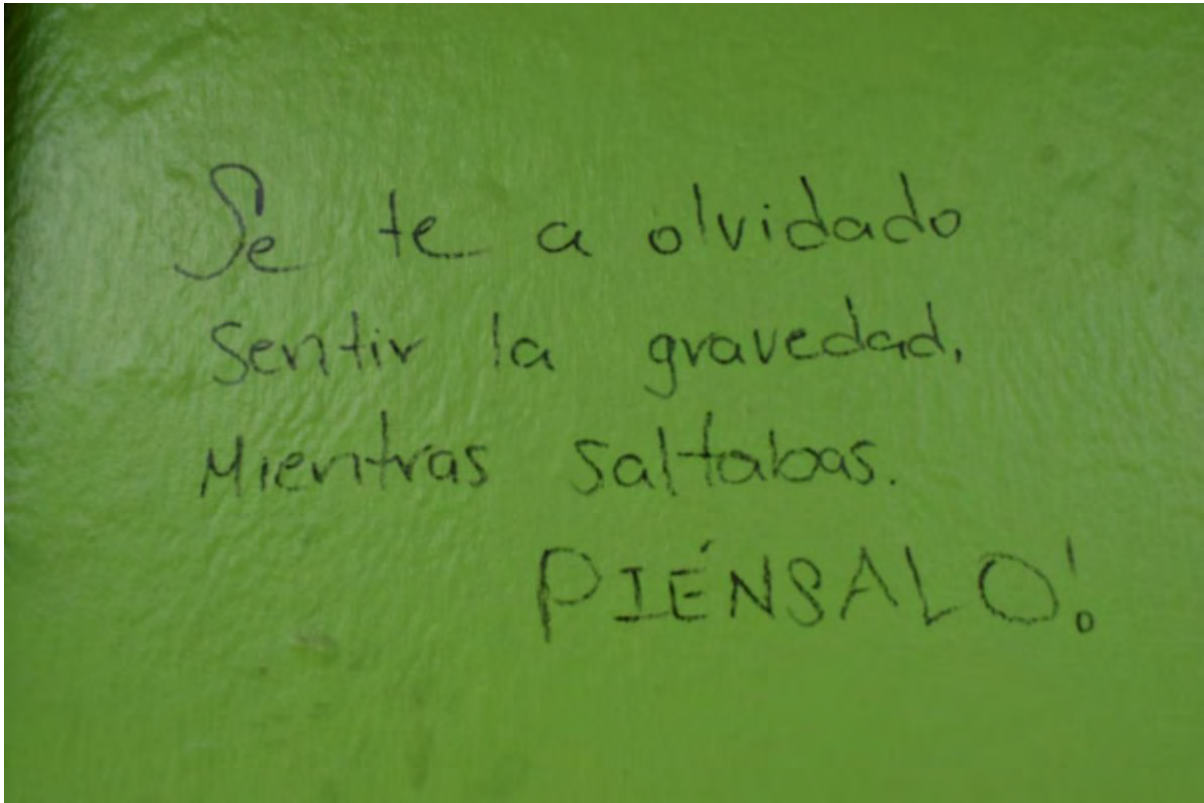 Se te a olvidado
sentir la gravedad,
Mientras saltabas.
PIÉNSALO!